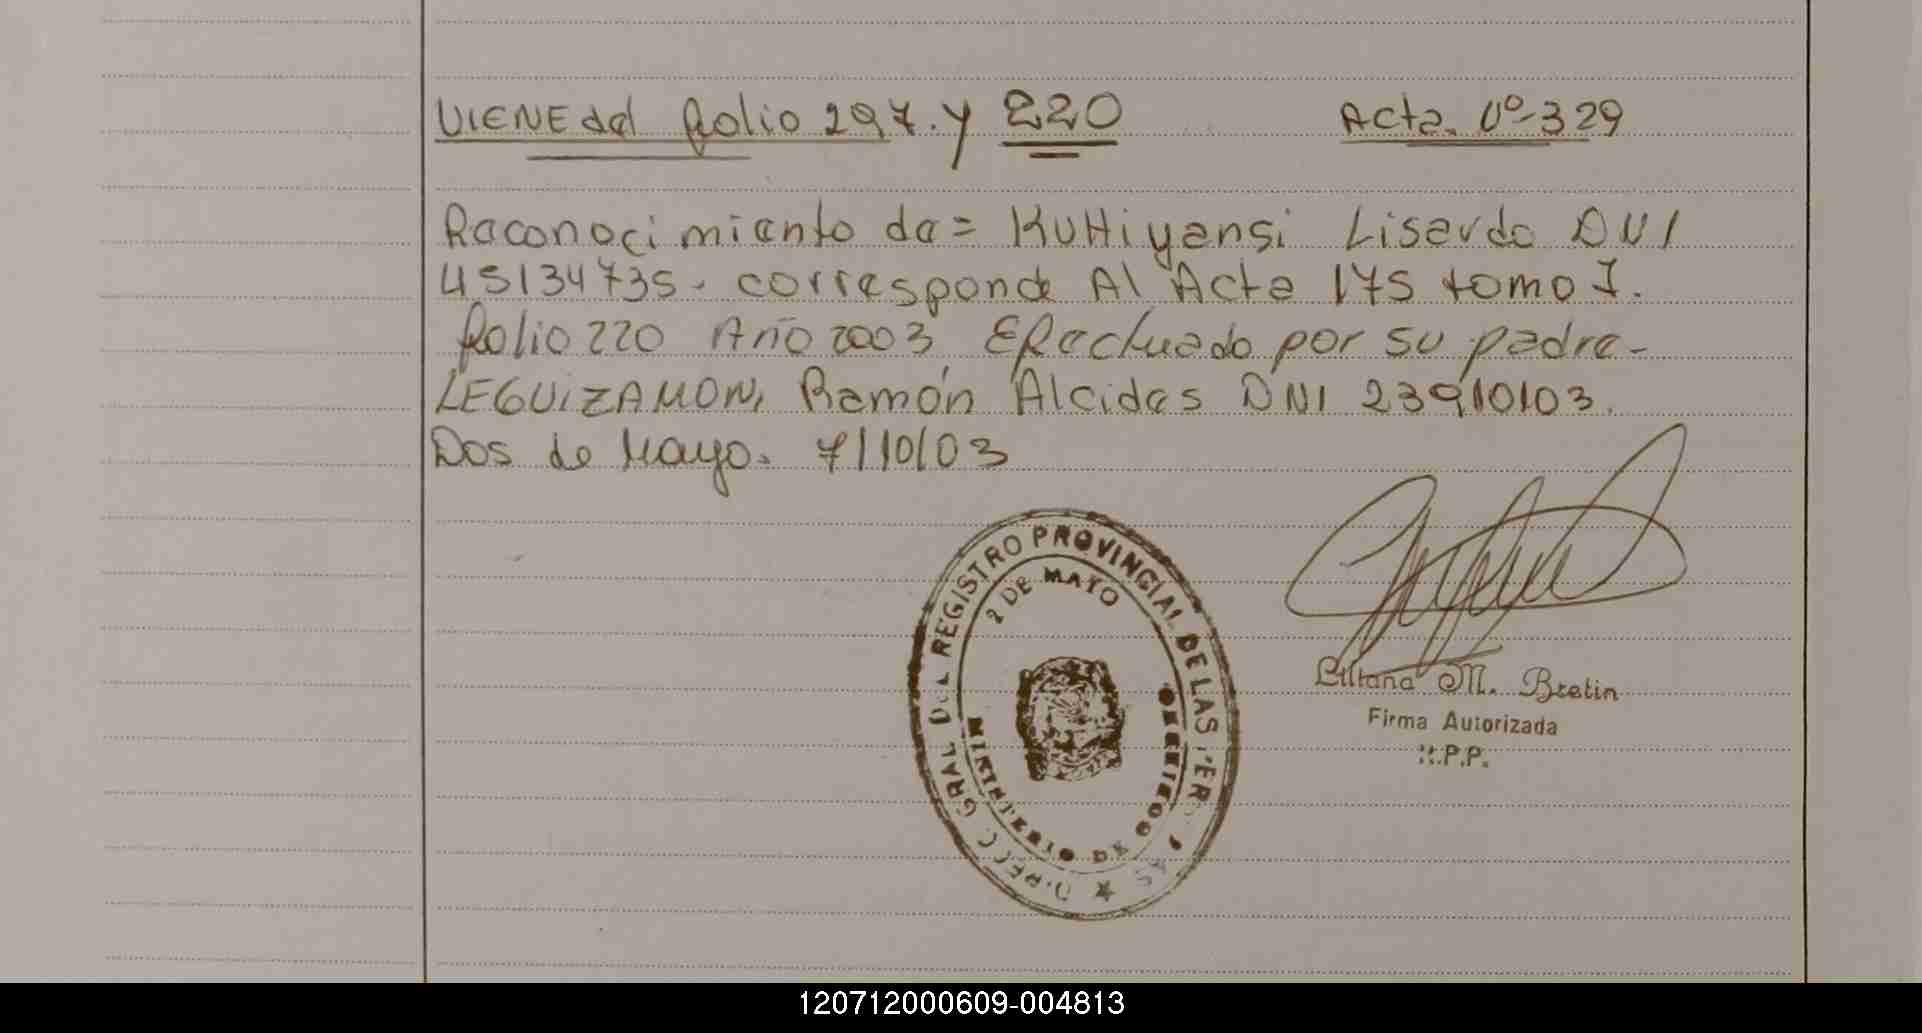 VIENE del folio 297. y 220
Acta. Nº 329
Reconocimiento de= Kuttiyansi Lisardo DNI
45134735. corresponde Al Acta 175 tomo I.
folio 220 Año 2003 Efectuado por su padre-
LEGUIZAMON, Ramón Alcides DNI 23910103.
Dos de Mayo. 7/10/03
GRAL. DEL REGISTRO PROVINCIAL DE LAS PER
2 DE MAYO
MINISTERIO DE GOBIERNO
Liliana M. Bretin
Firma Autorizada
R.P.P.
120712000609-004813